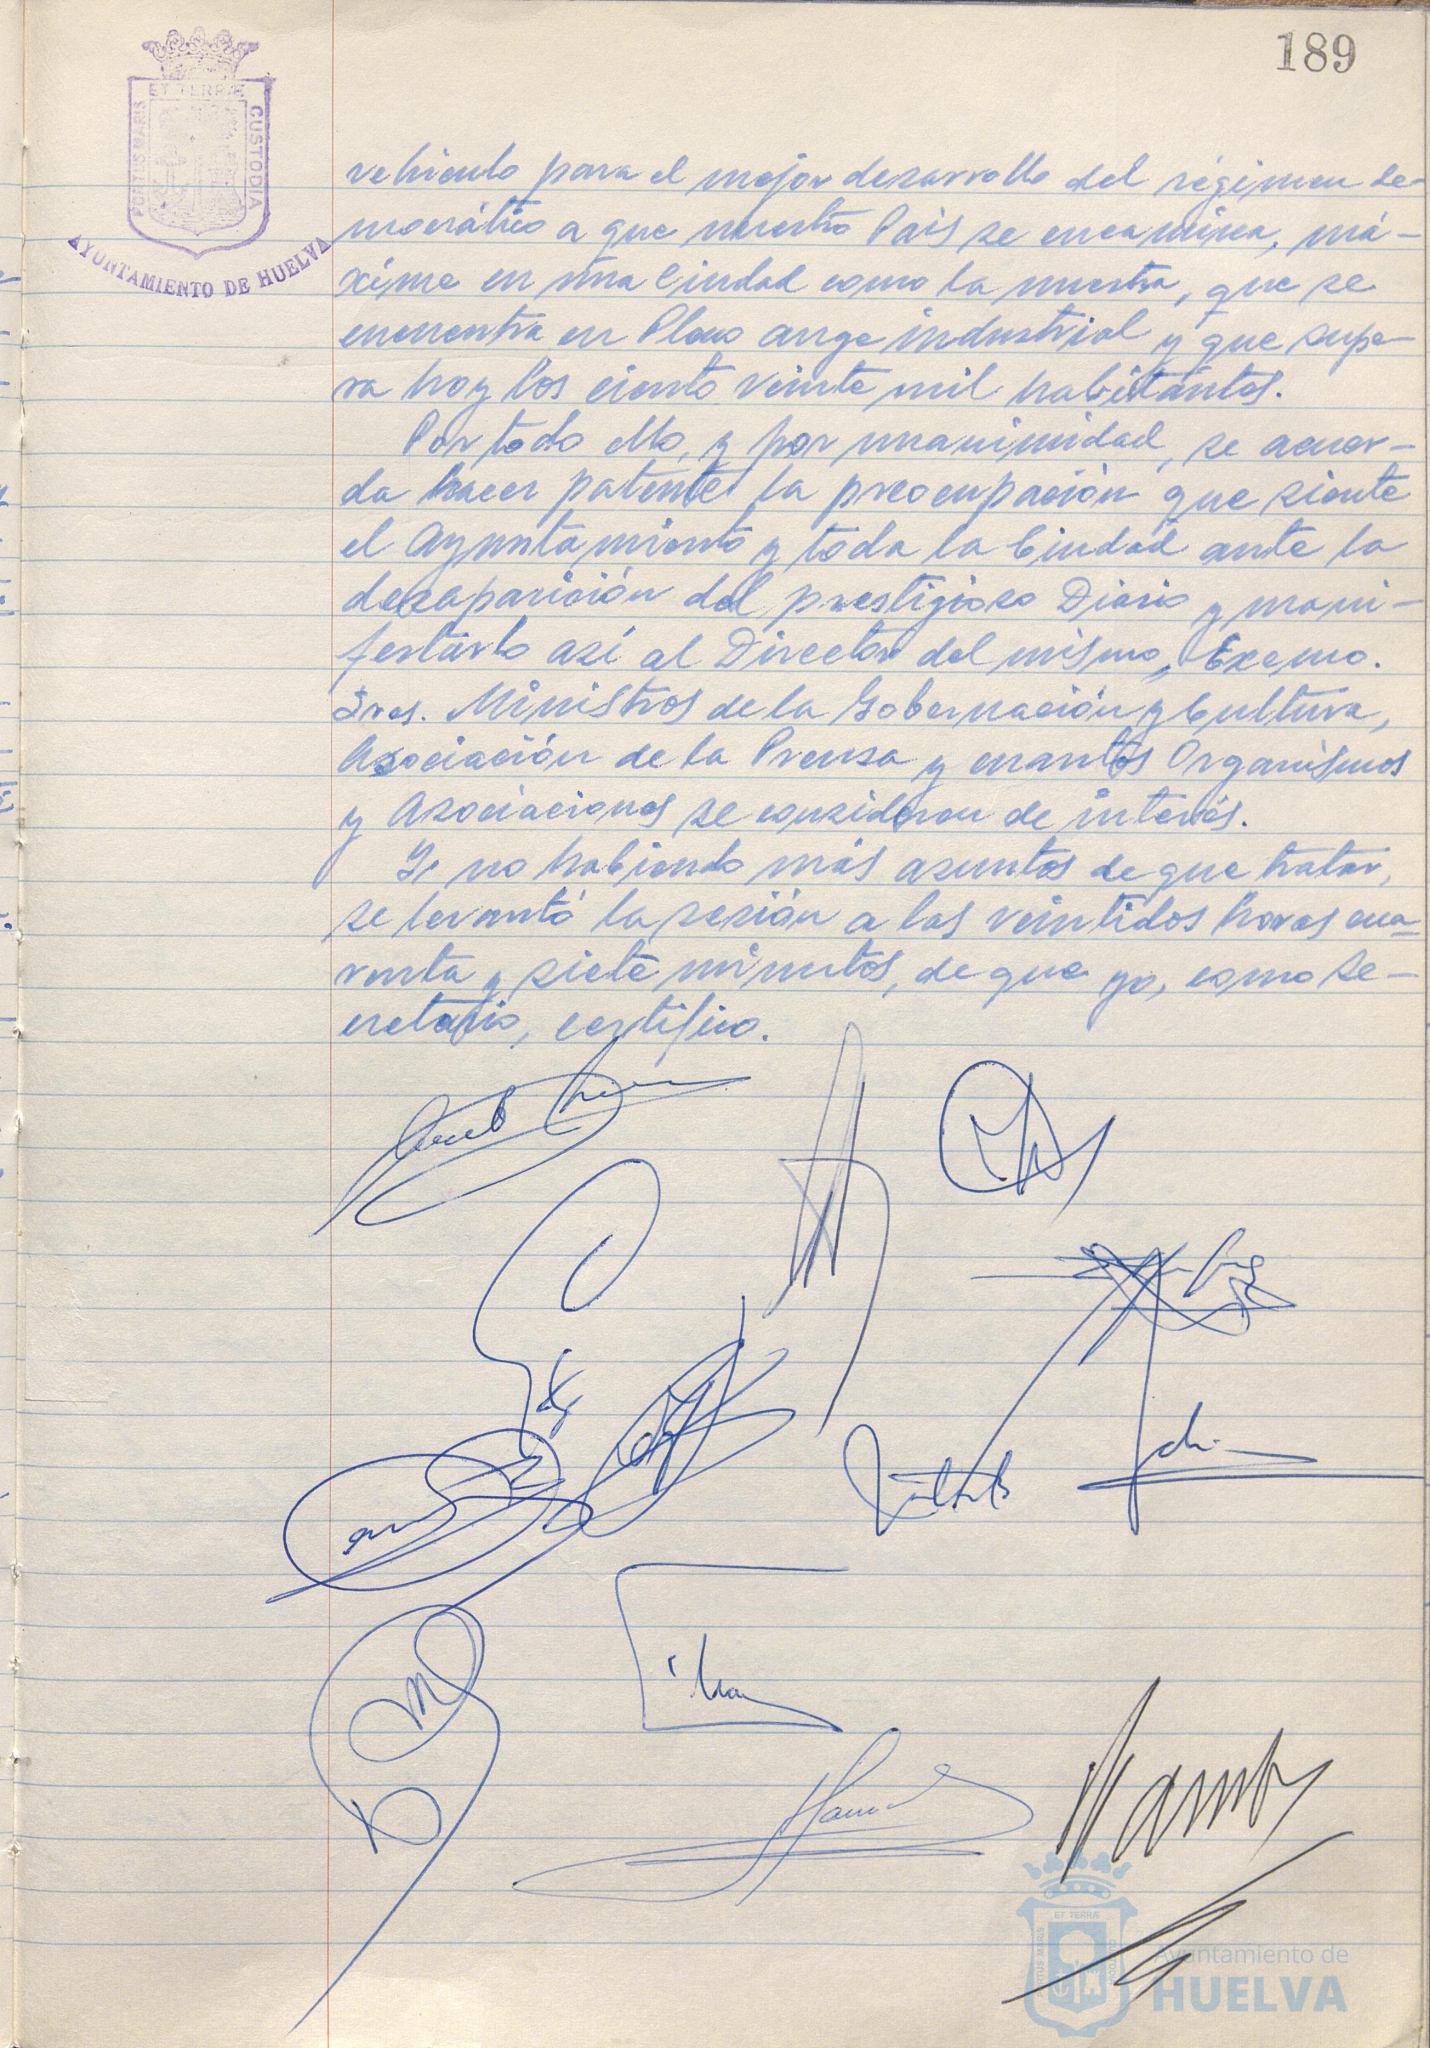 189
ET TERRÆ
PORTUS MARIS
CUSTODIA
AYUNTAMIENTO DE HUELVA
vehículo para el mejor desarrollo del régimen de-
mocrático a que nuestro País se encamina, má-
xime en una Ciudad como la nuestra, que se
encuentra en Pleno auge industrial y que supe-
ra hoy los ciento veinte mil habitantes.
Por todo ello, y por unanimidad, se acuer-
da hacer patente la preocupación que siente
el Ayuntamiento y toda la Ciudad ante la
desaparición del prestigioso Diario y mani-
festarlo así al Director del mismo, Excmo.
Sres. Ministros de la Gobernación y Cultura,
Asociación de la Prensa y cuantos Organismos
y Asociaciones se consideran de interés.
Y no habiendo más asuntos de que tratar,
se levantó la sesión a las veintidos horas cua-
renta y siete minutos, de que yo, como Se-
cretario, certifico.
ET TERRÆ
Ayuntamiento de
HUELVA